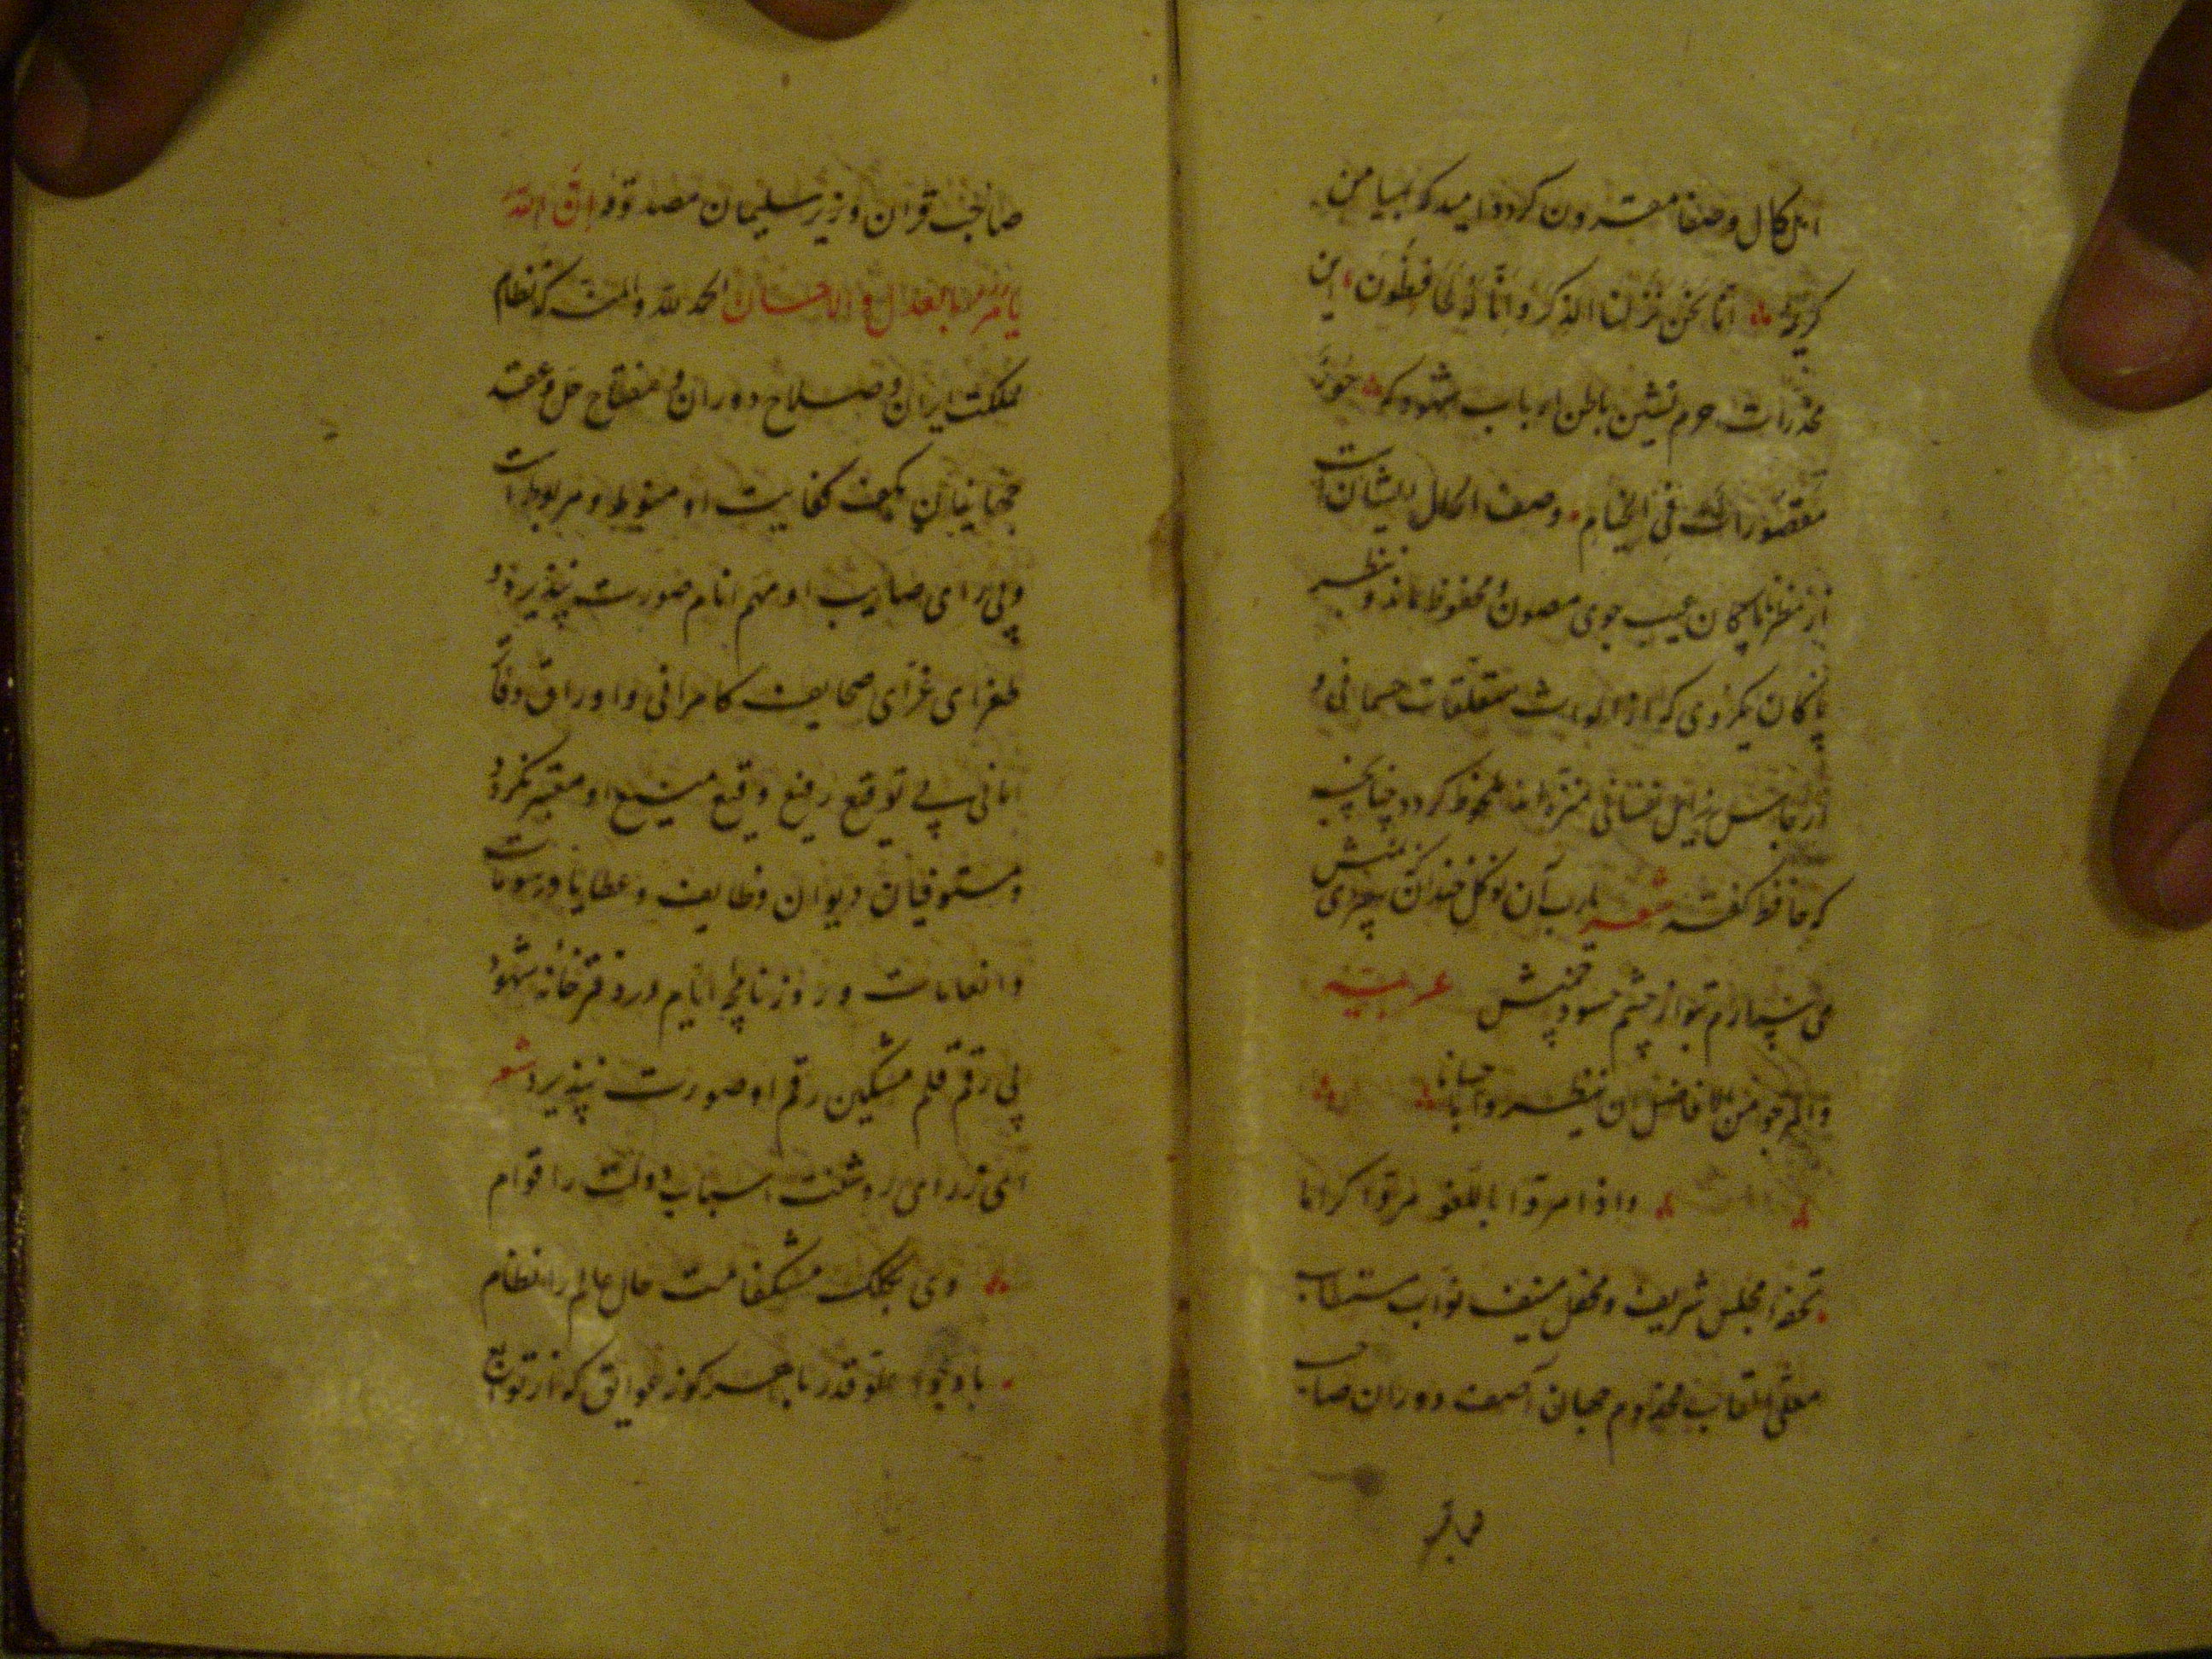 اهل کمال و صفا مقرون کردد امید که بمیامن
کریمه انا نحن نزلنا الذکر و انا له لحافظون این
مخدرات حرم نشین باطن ارباب شهود که حور
مقصورات فی الخیام وصف الحال ایشان است
از نظر ناپاکان عیب جوی مصون و محفوظ ماند و بنظر
پاکان یکروی که از لوث متعلقات جسمانی و
ارجاس رذایل نفسانی منزه اند ملحوظ کردد چنانچه
که حافظ کفته شعر یارب آن نوکل خندان که سپردی بمنش
می سپارم بتو از چشم حسود چمنش عربیه
والمرجو من الافاضل ان ینظروا احیانا
واذا مروا باللغو مروا کراما
تحفه مجلس شریف و محفل منیف نواب مستطاب
معلی القاب مخدوم جهان آصف دوران صاحب
صاحب قران وزیر سلیمان مصدوقه ان الله
یامر بالعدل والاحسان الحمد لله والمنه که نظام
مملکت ایران و صلاح دوران و مفتاح حل و عقد
جهانیان بکف کفایت او منوط و مربوط است
و بی رای صایب او مهم انام صورت نپذیرد و
طغرای غرای صحایف کامرانی و اوراق وقایع
امانی بی توقیع رفیع وقیع منیع او معتبر نکردد
و مستوفیان دیوان وظایف و عطایا و رسومات
و انعامات و روزنامچه ایام در دفترخانه شهود
بی رقم قلم مشکین رقم او صورت نپذیرد شعر
ای ز رای روشنت اسباب دولت را قوام
وی بکلک مشکفامت حال عالم را نظام
با وجود علو قدر با هر کونه عوایق که از توابع